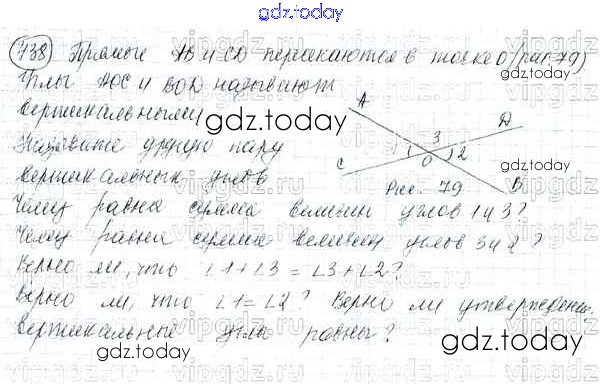 gdz.today
738 Прямые АВ и CD пересекаются в точке О (рис 79)
Углы АОС и BOD называют
вертикальными
gdz.today
gdz.today
Назовите другую пару
вертикальных углов
A
D
3
1
2
O
C
B
Рис. 79
Чему равна сумма величин углов 1 и 3?
Чему равна сумма величин углов 3 и 2?
Верно ли, что ∠1+∠3=∠3+∠2?
gdz.today
gdz.today
Верно ли, что ∠1=∠2? Верно ли утверждение:
вертикальные углы равны?
gdz.today
gdz.today
vipgdz.ru